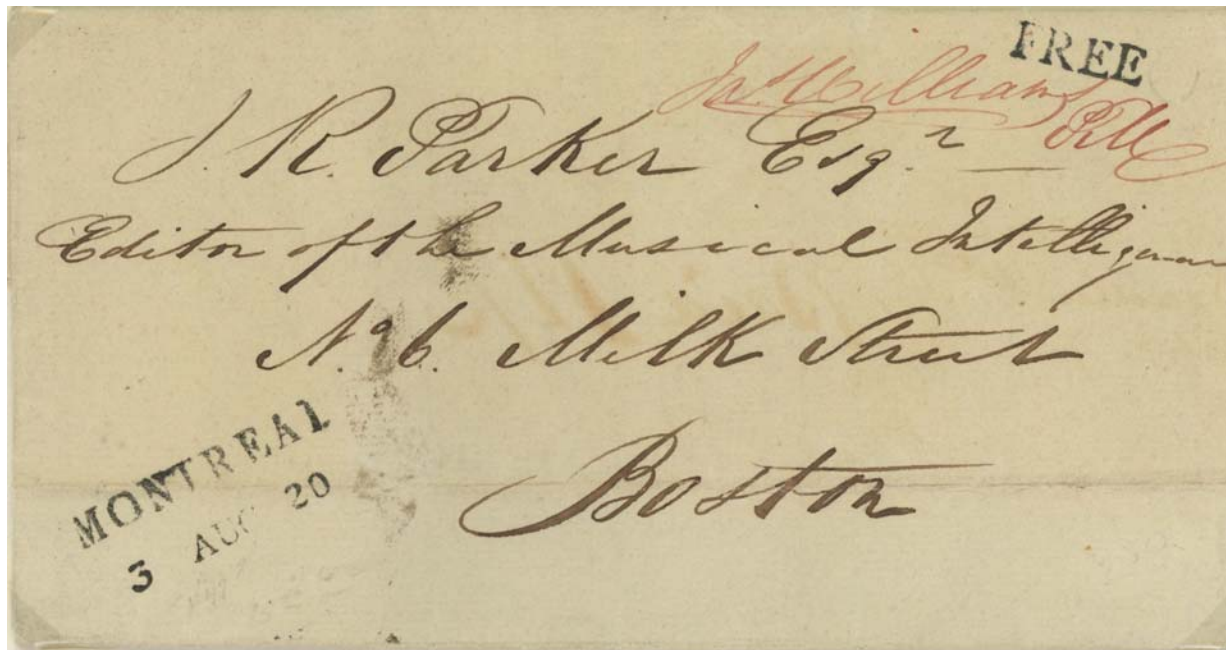 FREE
Jas. Williams
PM
J. R. Parker Esqr. —
Editor of the Musical Intelligencer
No. 6. Milk Street
Boston
MONTREAL
3 AUG 20